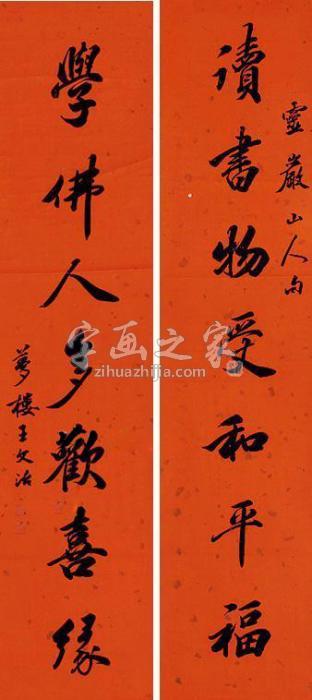 靈巖山人句
讀書物受和平福
學佛人多歡喜緣
夢樓王文治
字画之家
zihuazhijia.com